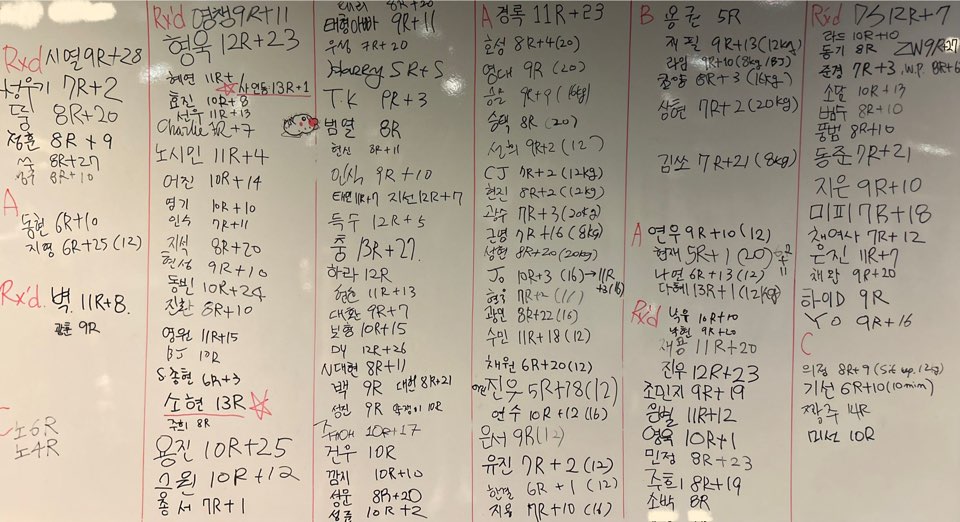 Rxd 시열 9R+28
7R+2
8R+20
정훈 8R+9
8R+27
8R+10
A
동현 6R+10
지명 6R+25 (12)
Rx'd. 벽. 11R+8.
광훈 9R
C
노6R
노4R
Rx'd 영쟁 9R+11
형욱 12R+23
혜연 11R+
사연동 13R+1
효진 10R+8
선우 11R+13
Charlie R+7
노시민 11R+4
어진 10R+14
영기 10R+10
인수 7R+11
지식 8R+20
현성 9R+10
동빈 10R+24
진환 8R+10
영원 11R+15
BJ 10R
S송현 6R+3
소현 13R
주희 8R
용진 10R+25
10R+12
홍서 7R+1
8R+20
태형아빠 9R+11
우성 7R+20
Harry 5R+5
T.K 9R+3
범열 8R
현신 8R+11
인식 9R+10
태연 11R+7 지선 12R+7
득수 12R+5
춤 13R+27
하라 12R
11R+13
대환 9R+7
보형 10R+15
DY 12R+26
시대현 8R+11
백 9R 대현 8R+21
성진 9R 10R
10R+17
건우 10R
깜지 10R+10
성문 8R+20
성준 10R+2
A 경록 11R+23
효성 8R+4 (20)
영대 9R (20)
9R+9 (16kg)
승택 8R (20)
선희 9R+2 (12)
CJ 7R+2 (12kg)
현진 8R+2 (12kg)
광수 7R+3 (20kg)
근영 7R+16 (8kg)
성현 8R+20 (20kg)
JG 10R+3 (16) → 11R
+3 (16)
형우 7R+2 (16)
광민 8R+22 (16)
수민 11R+18 (12)
채원 6R+20 (12)
진우 5R+18 (12)
연수 10R+12 (16)
은서 9R (12)
유진 7R+2 (12)
한결 6R+1 (12)
지욱 7R+10 (16)
B 용권 5R
재필 9R+13 (12kg)
라임 9R+10 (8kg/B3)
8R+3 (16kg)
상현 7R+2 (20kg)
김쏘 7R+21 (8kg)
A 연우 9R+10 (12)
현재 5R+1 (20)
나연 6R+13 (12)
다혜 13R+1 (12kg)
Rx'd 낙우 10R+10
낙현 9R+20
재용 11R+20
진우 12R+23
조민지 9R+19
원빌 11R+12
영욱 10R+1
민정 8R+23
주희 8R+19
소박 8R
Rx'd DS 12R+7
라드 10R+10
동기 8R ZW 9R+27
준경 7R+3 W.P. 8R+6
소달 10R+13
범두 8R+10
풍범 8R+10
동준 7R+21
지은 9R+10
미피 7R+18
채여사 7R+12
윤진 11R+7
채왕 9R+20
하이D 9R
YO 9R+16
C
의정 8R+9 (Sit up. 12kg)
기선 6R+10 (10min)
짱주 14R
미선 10R